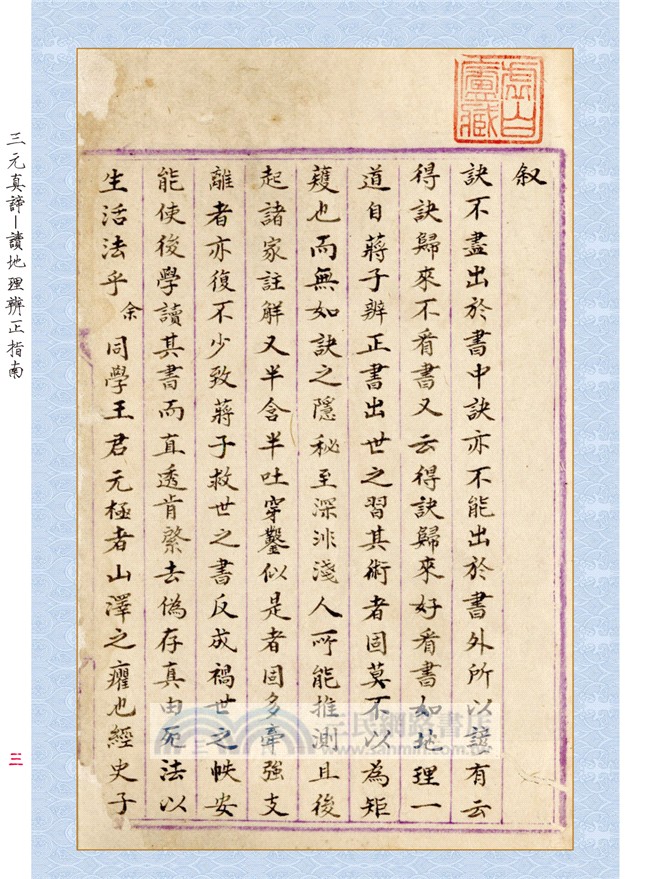 虛白廬藏
叙
訣不盡出於書中訣亦不能出於書外所以諺有云
得訣歸來不看書又云得訣歸來好看書如地理一
道自蔣子辨正書出世之習其術者固莫不以為矩
矱也而無如訣之隱秘至深非淺人所能推測且後
起諸家註解又半含半吐穿鑿似是者固多牽強支
離者亦復不少致蔣子救世之書反成禍世之帙安
能使後學讀其書而直透肯綮去偽存真由死法以
生活法乎余同學王君元極者山澤之癯也經史子
三元真諦—讀地理辨正指南
三
三民網路書店
www.sanmin.com.tw